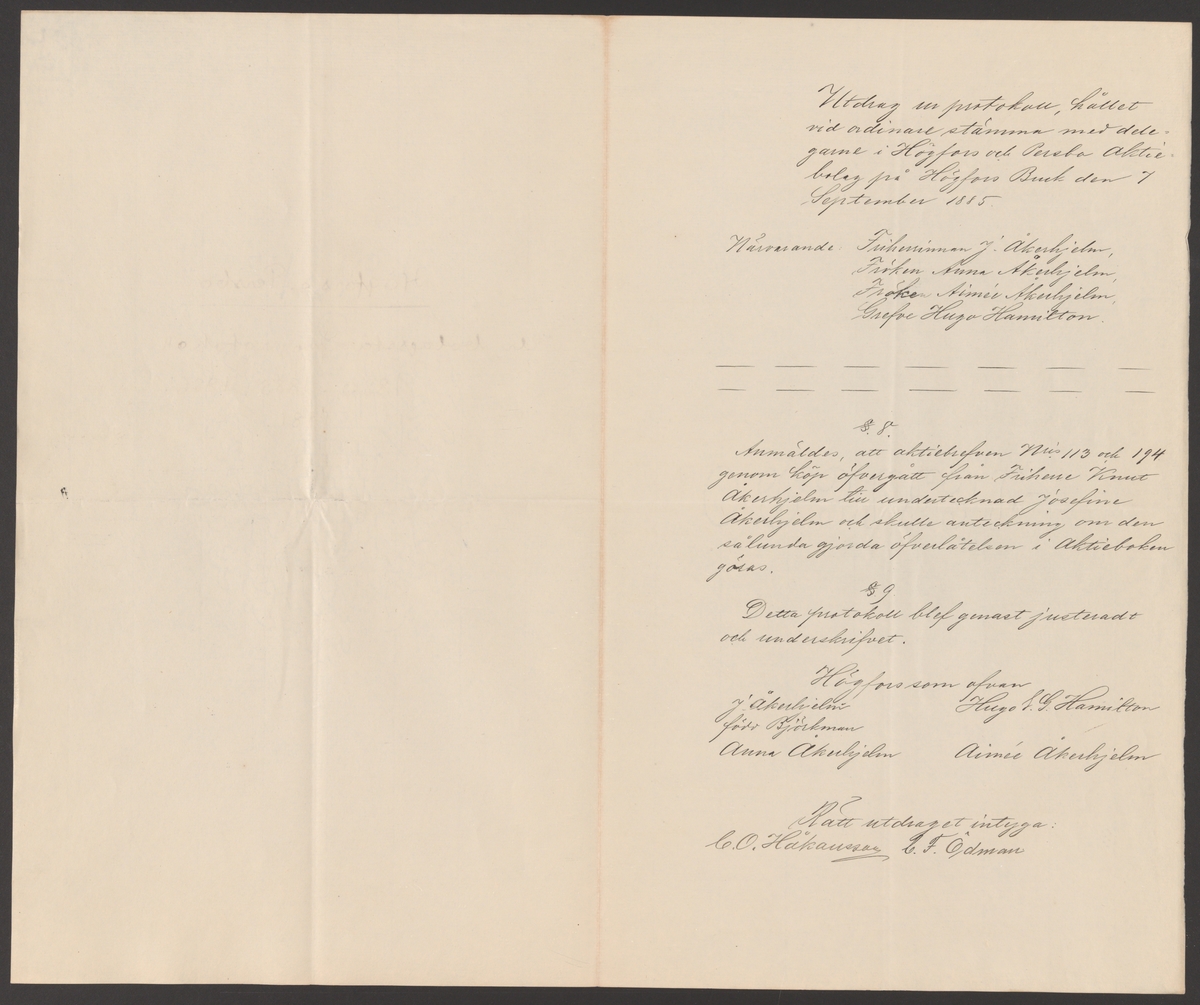 Utdrag ur protokoll, hållet
vid ordinarie stämma med dele-
garne i Högfors och Persbo Aktie-
bolag på Högfors Bruk den 7
September 1885.
Närvarande: Friherrinnan J. Åkerhjelm,
Fröken Anna Åkerhjelm,
Fröken Aimée Åkerhjelm,
Grefve Hugo Hamilton.
§. 8.
Anmäldes, att aktiebrefven Nris 113 och 194
genom köp öfvergått från Friherre Knut
Åkerhjelm till undertecknad Josefine
Åkerhjelm och skulle anteckning om den
sålunda gjorda öfverlåtelsen i Aktieboken
göras.
§ 9
Detta protokoll blef genast justeradt
och underskrifvet.
Högfors som ofvan
J. Åkerhjelm Hugo E. G. Hamilton
född Björkman
Anna Åkerhjelm Aimée Åkerhjelm
Rätt utdraget intyga:
C. O. Håkansson C. F. Ödman